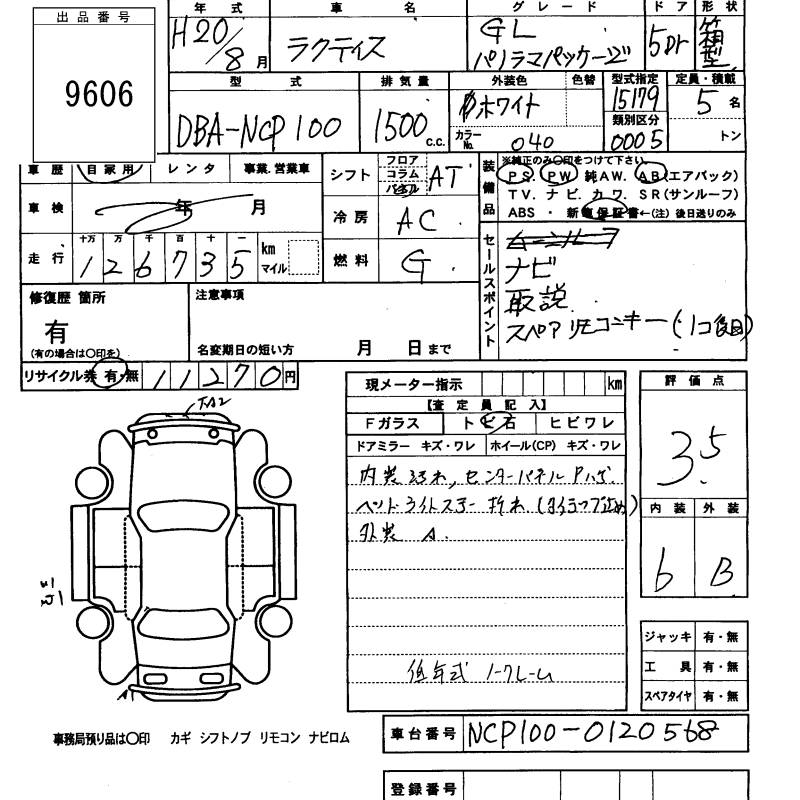 出品番号
9606
年式 車名 グレード ドア 形状
H20/8月 ラクティス GL パノラマパッケージ 5Dr 箱型
型式 排気量 外装色 色替 型式指定 定員・積載
DBA-NCP100 1500c.c. ホワイト 15179 5名
カラーNo. 040 類別区分 0005 トン
車歴 自家用 レンタ 事業.営業車
車検 年 月
走行 十万 万 千 百 十 一 km マイル
126735
シフト フロア コラム パネル AT
冷房 AC
燃料 G
装備品 ※純正のみ〇印をつけて下さい。
PS. PW 純AW. AB(エアバック)
TV. ナビ. カワ. SR(サンルーフ)
ABS ・ 新車保証書←(注)後日送りのみ
セールスポイント
ナビ
取説
スペアリモコンキー(
修復歴 箇所
有
(有の場合は〇印を)
注意事項
名変期日の短い方 月 日まで
リサイクル券 有・無 11270円
現メーター指示 km
【査定員記入】
Fガラス トビ石 ヒビワレ
ドアミラー キズ・ワレ ホイール(CP) キズ・ワレ
内装 汚れ, センターパネル Pハゲ
ヘッドライトステー 折れ
外装 A
低年式 ノークレーム
評価点
3.5
内装 外装
6 B
ジャッキ 有・無
工具 有・無
スペアタイヤ 有・無
事務局預り品は〇印 カギ シフトノブ リモコン ナビロム
車台番号 NCP100-0120568
登録番号